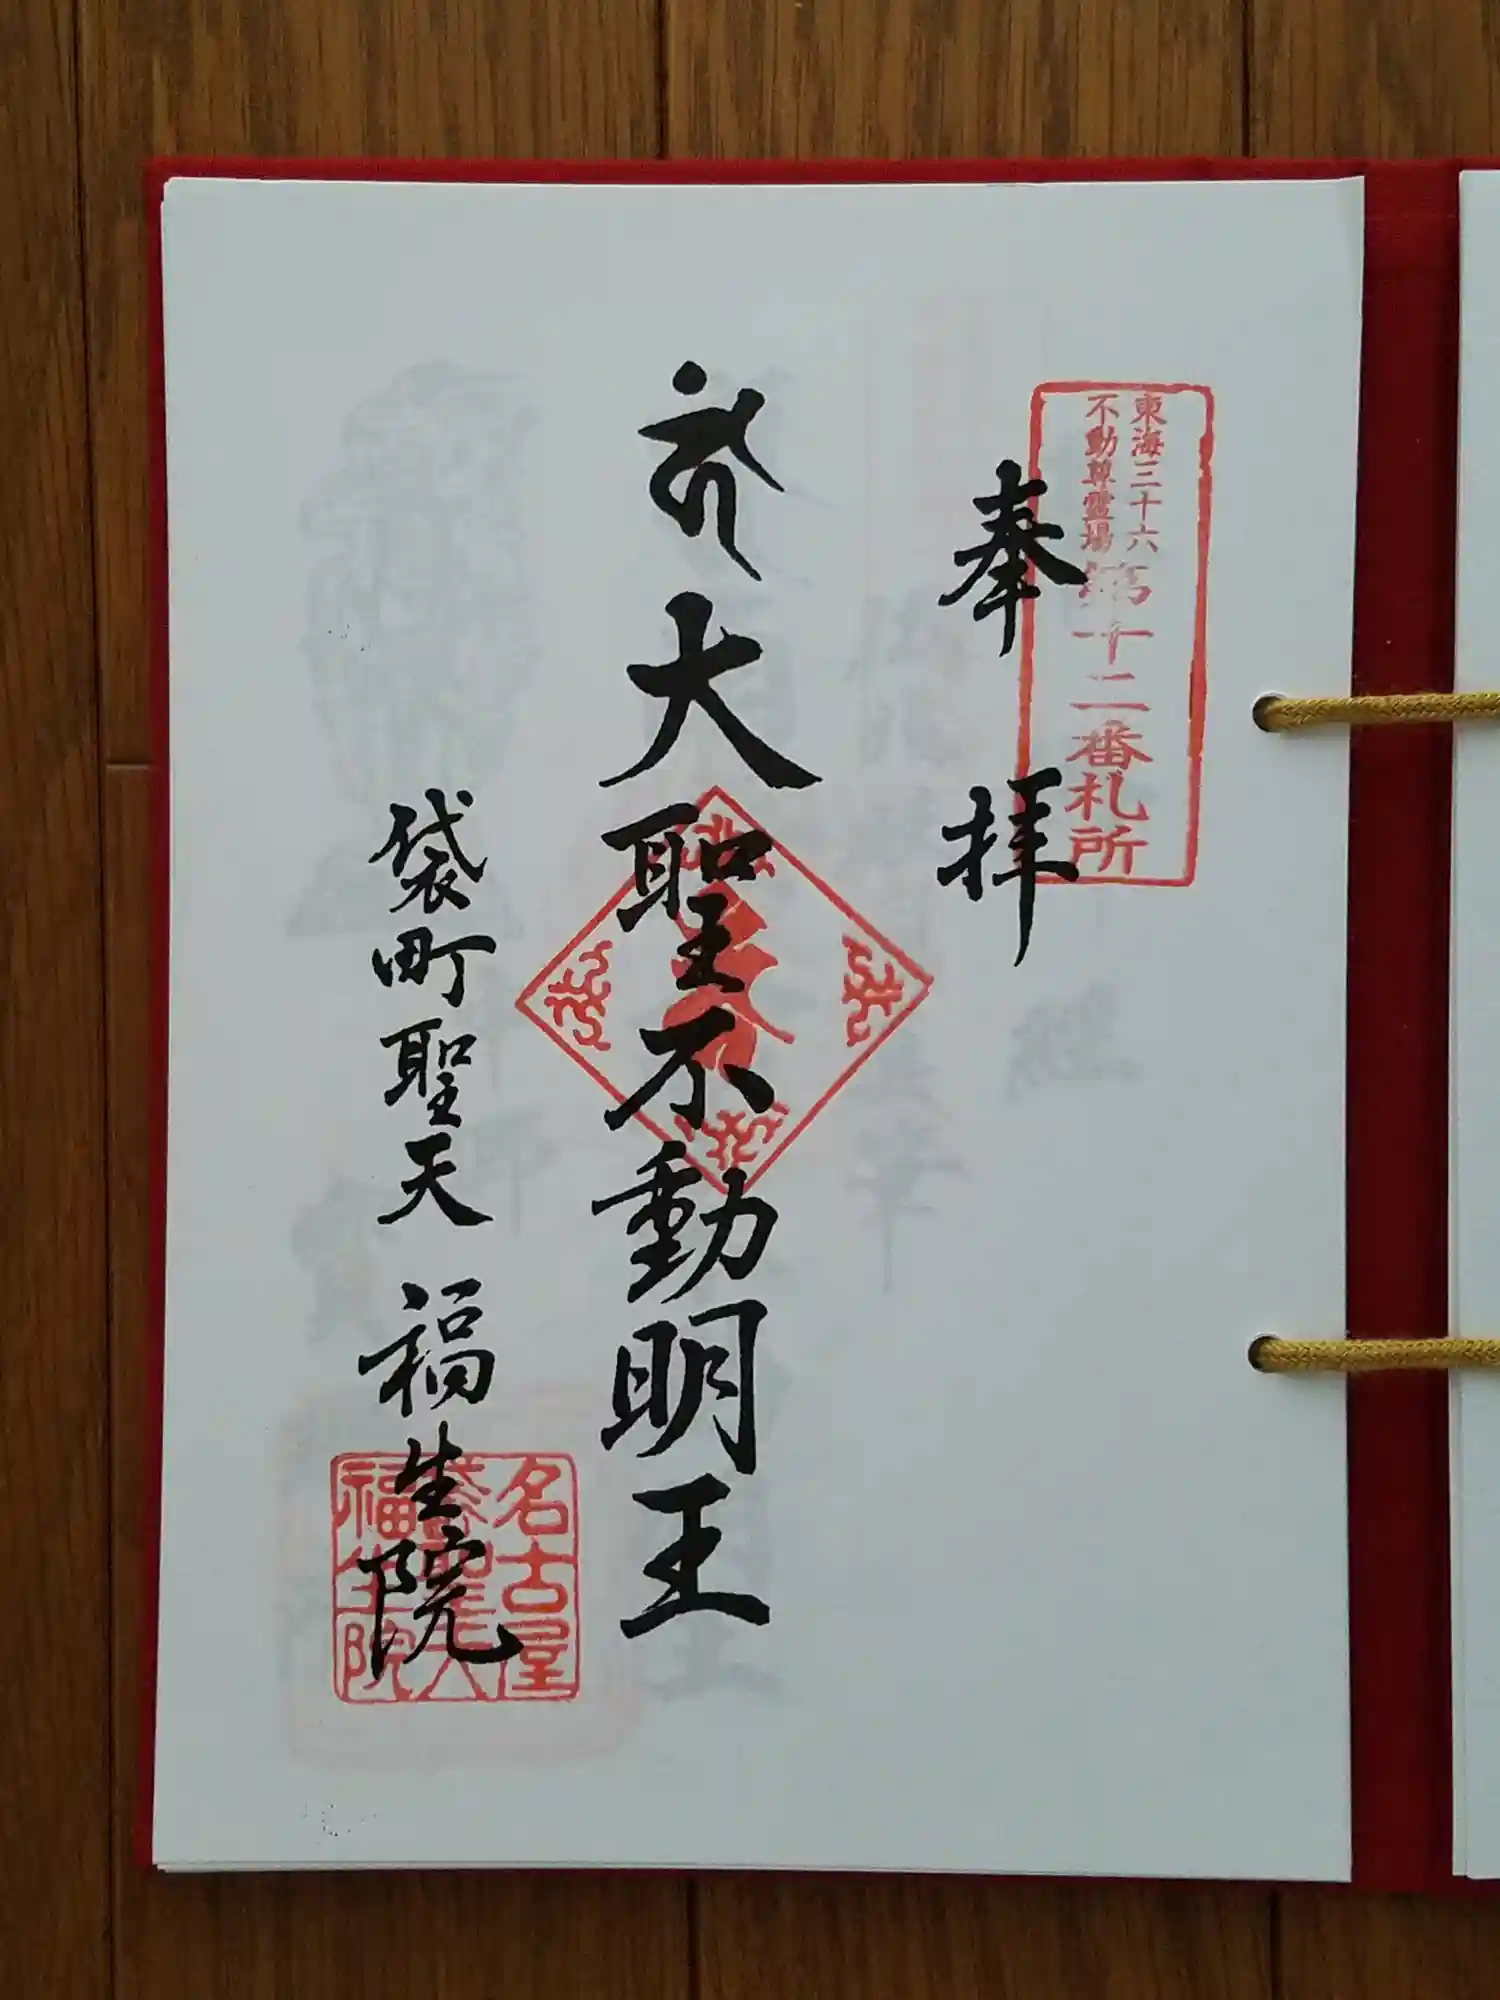 東海三十六
不動尊霊場
第十二番札所
奉拝
大聖不動明王
袋町聖天 福生院
名古屋
袋聖天
福生院